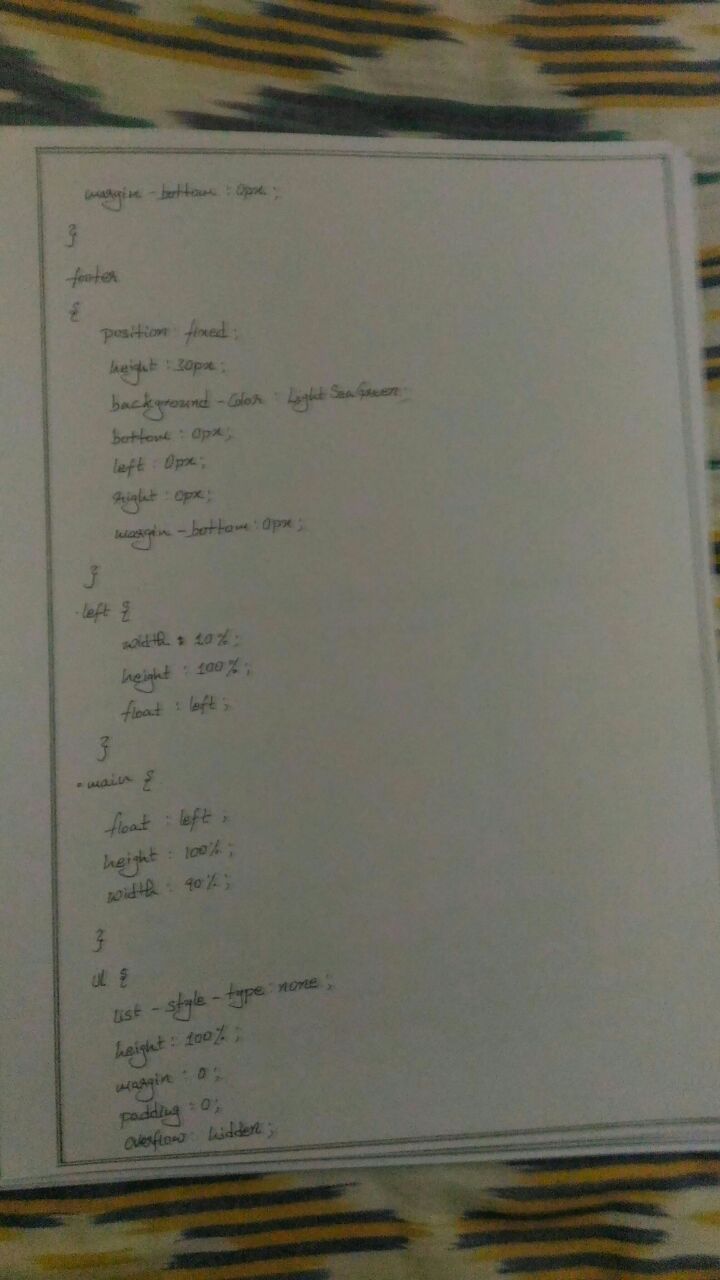 margin-bottom : 0px ;
}
footer
{
position : fixed ;
height : 30px ;
background-color : LightSeaGreen ;
bottom : 0px ;
left : 0px ;
right : 0px ;
margin-bottom : 0px ;
}
.left {
width : 10% ;
height : 100% ;
float : left ;
}
.main {
float : left ;
height : 100% ;
width : 90% ;
}
ul {
list-style-type : none ;
height : 100% ;
margin : 0 ;
padding : 0 ;
overflow : hidden ;